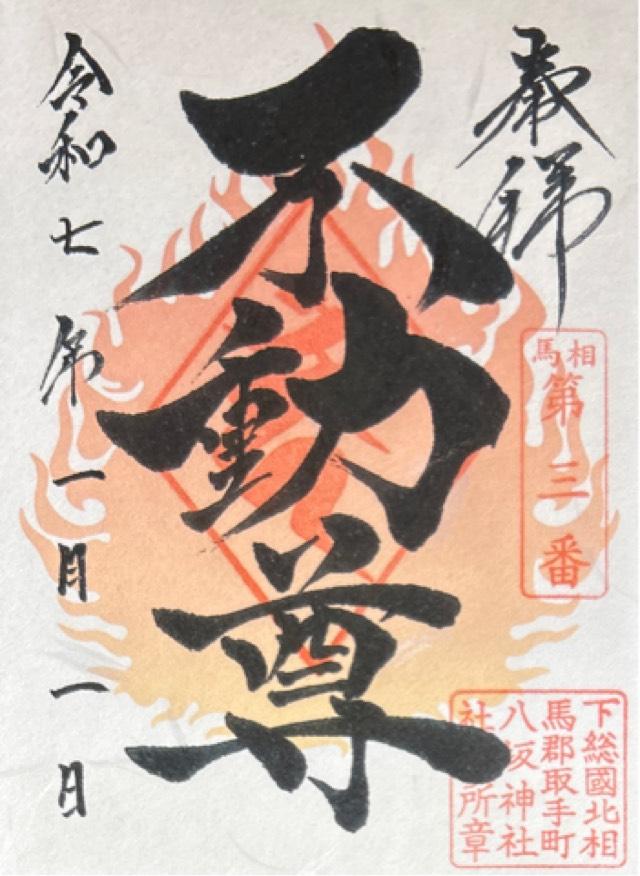 奉拝
相馬
第三番
不動尊
令和七年一月一日
下総國北相
馬郡取手町
八坂神社
社務所章